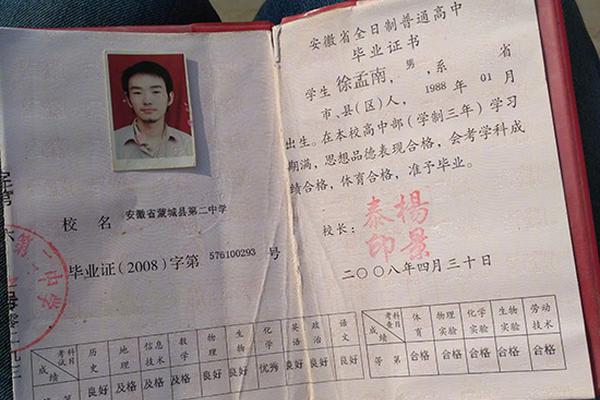 校名 安徽省蒙城县第二中学
毕业证(2008)字第 576100293 号
第二中学
考试科目 历史 地理 信息技术 数学 物理 生物 化学 英语 政治 语文
成绩 良好 及格 及格 及格 良好 良好 优秀 良好 良好 良好
安徽省全日制普通高中
毕业证书
学生 徐孟南,男,系 省
市、县(区)人,1988 年 01 月
出生。在本校高中部(学制三年)学习
期满,思想品德表现合格,会考学科成
绩合格,体育合格,准予毕业。
校长: 楊景泰印
二〇〇八年四月三十日
成绩 考查科目 体育 物理实验 化学实验 生物实验 劳动技术
等第 合格 合格 合格 合格 合格